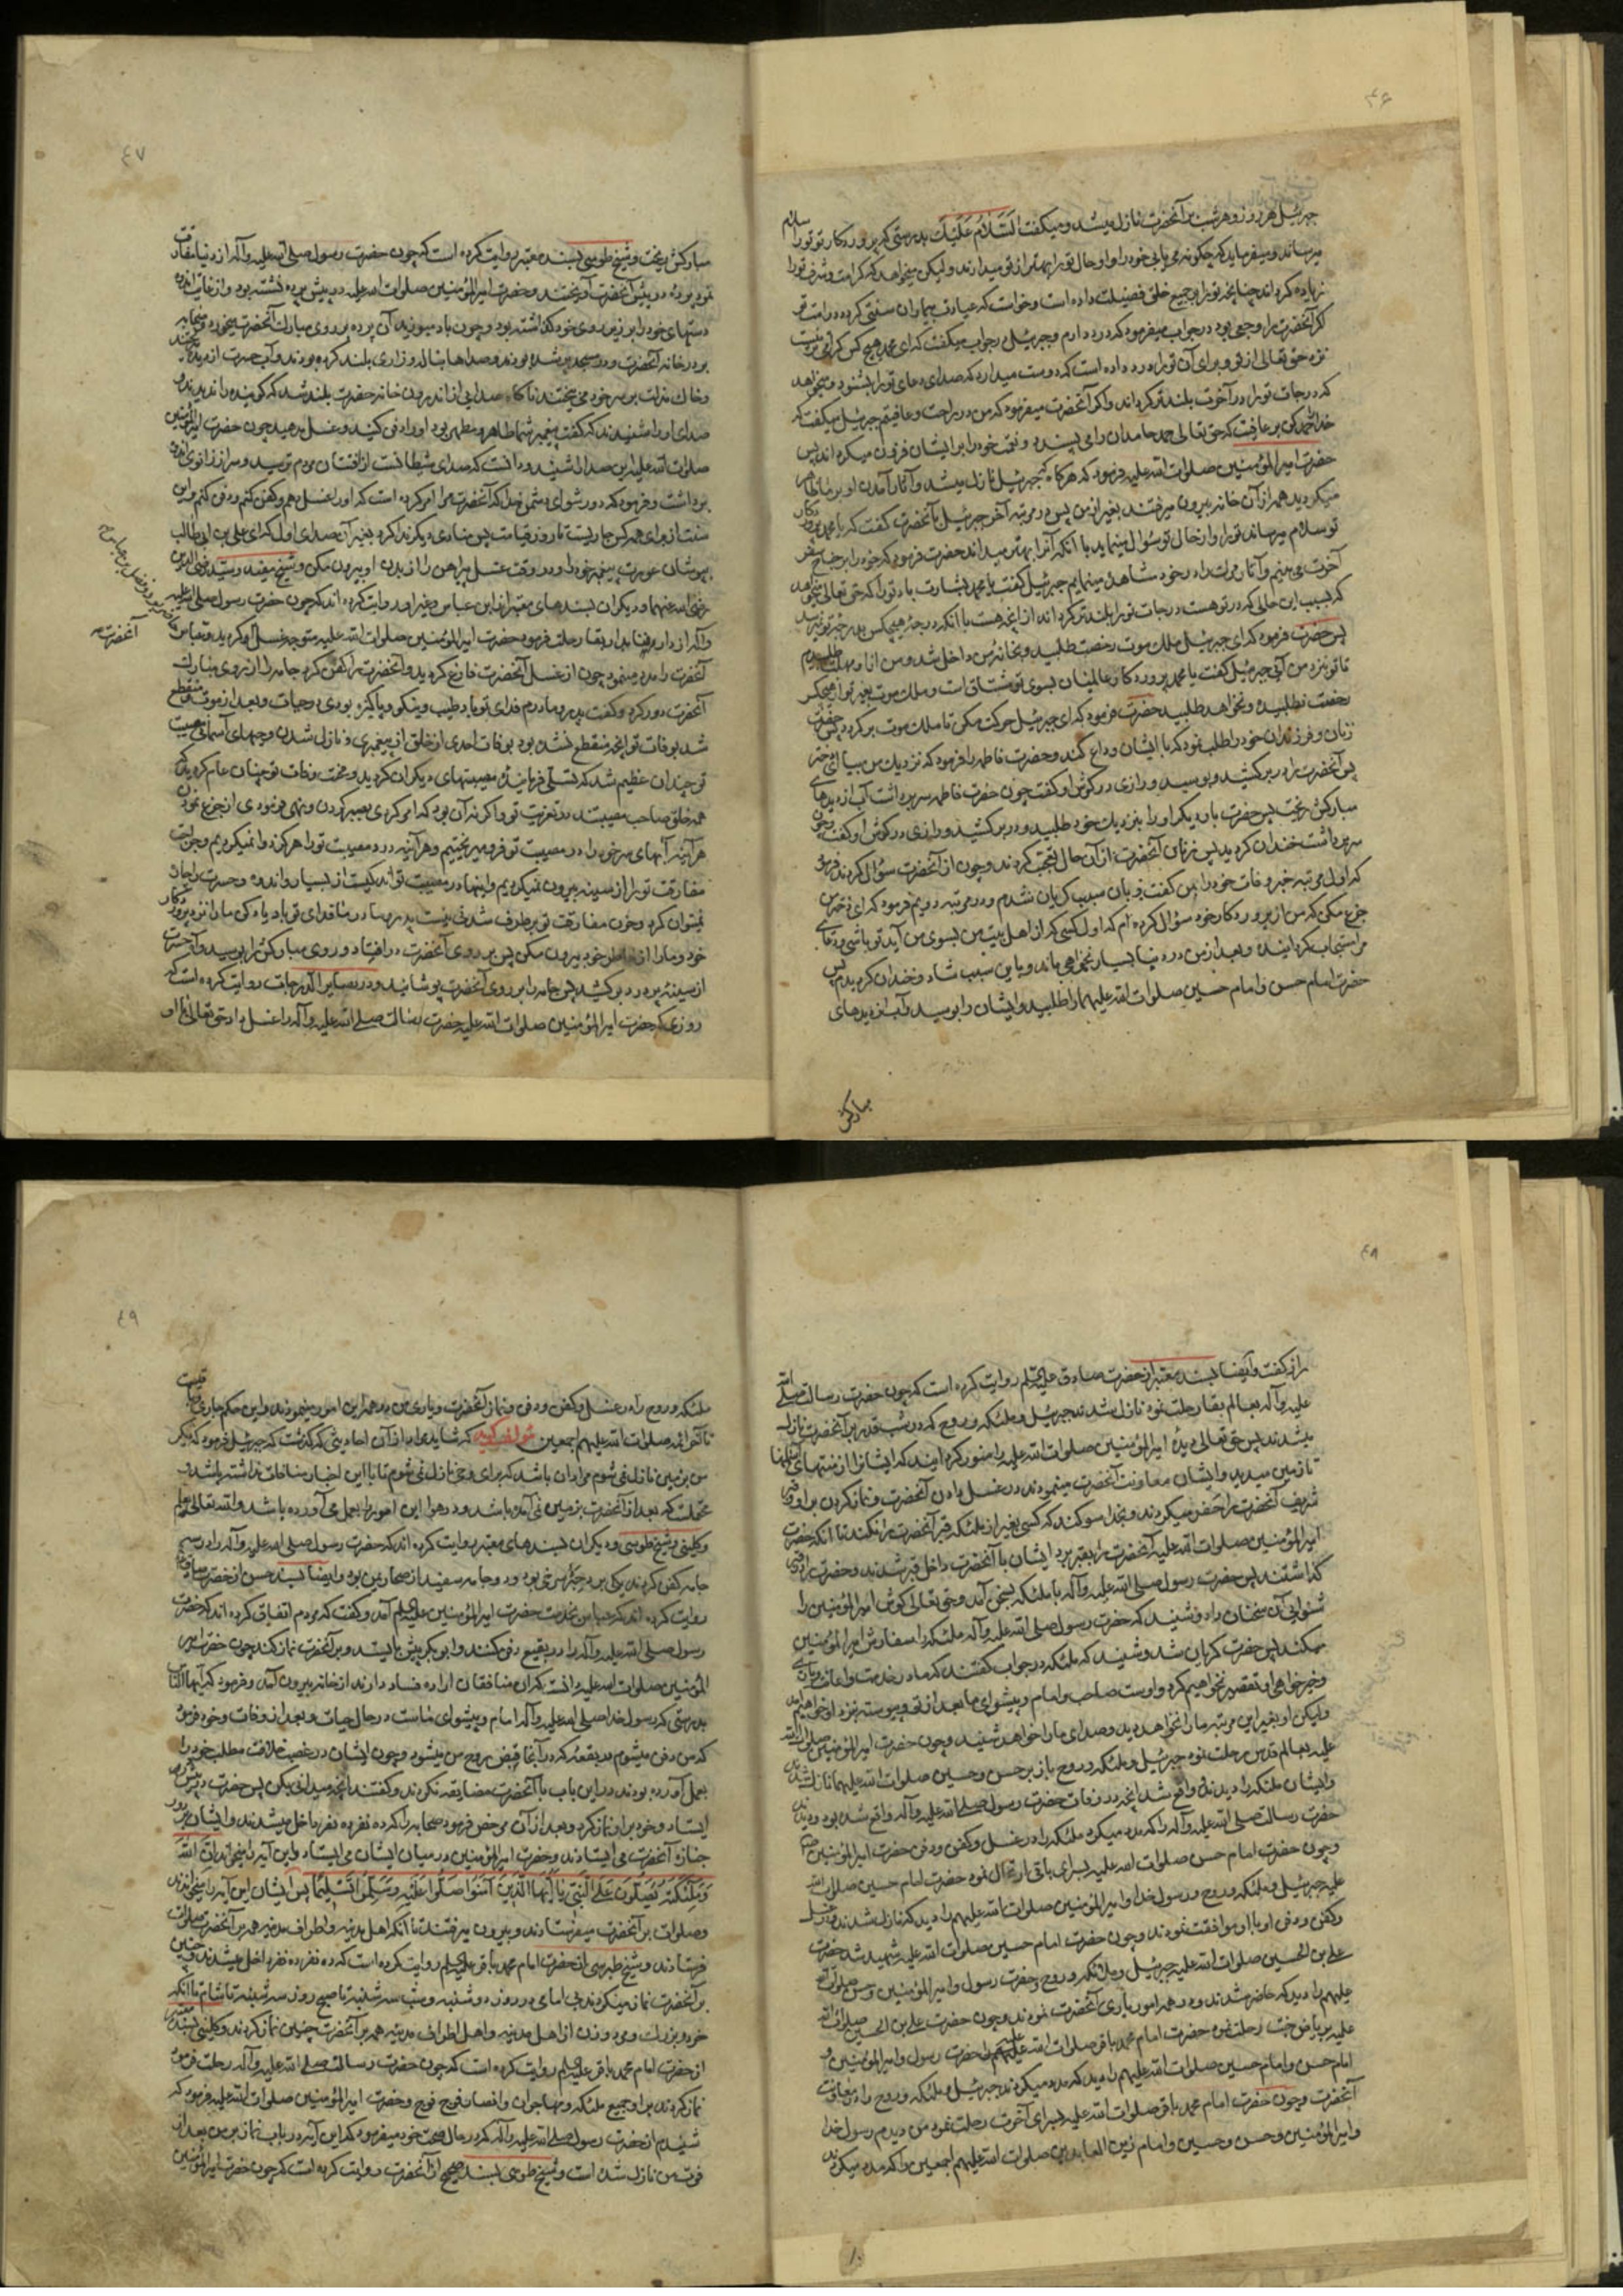 ۴۶
جبرئیل هر روز و هر شب بر آنحضرت نازل میشد و میگفت السلام علیک بدرستی که پروردگار تو تورا سلام
میرساند و میفرماید که چگونه می یابی خود را و او حال تورا بهتر از تو میدارند ولیکن میخواهد که کرامت و شرف تورا
زیاده گرداند چنانچه تورا بر جمیع خلق فضیلت داده است و خواست که عیادت بیماران سنتی گردد در امت تو
اگر آنحضرت را وجعی بود در جواب میفرمود که درد دارم و جبرئیل در جواب میگفت که ای محمد هیچ کس گرامی تر نیست
نزد حق تعالی از تو و برای آن تورا درد داده است که دوست میدارد که صدای دعای تورا بشنود و میخواهد
که درجات تورا در آخرت بلند تر گرداند و اگر آنحضرت میفرمود که من در راحت و عافیتم جبرئیل میگفت که
خدا را حمد کن بر عافیت که حق تعالی حمد حامدان را می پسندد و نعمت خود را بر ایشان افزون میگرداند پس
حضرت امیرالمؤمنین صلوات الله علیه فرمود که هرگاه که جبرئیل نازل میشد و آثار آمدن او بر ما ظاهر
میگردید همه از آن خانه بیرون میرفتند بغیر از من پس در مرتبه آخر جبرئیل با آنحضرت گفت که یا محمد پروردگار
تو سلام میرساند تورا و از حال تو سؤال مینماید با آنکه آنرا بهتر میداند حضرت فرمود که خود را بر جناح سفر
آخرت می بینم و آثار مرگ را در خود مشاهده مینمایم جبرئیل گفت یا محمد بشارت باد تورا که حق تعالی میخواهد
که بسبب این حالی که در تو هست درجات تورا بلند تر گرداند از آنچه هست با آنکه درجه هیچکس بدرجه تو نمیرسد
پس حضرت فرمود که ای جبرئیل ملک موت رخصت طلبید و بخانه من داخل شد و من از او مهلت طلبیدم
تا تو نزد من آیی جبرئیل گفت یا محمد پروردگار عالمیان بسوی تو مشتاق است و ملک موت بغیر تو از هیچکس
رخصت نطلبیده و نخواهد طلبید حضرت فرمود که ای جبرئیل حرکت مکن تا ملک موت برگردد پس حضرت
زنان و فرزندان خود را طلب نمود که با ایشان وداع کند و حضرت فاطمه را فرمود که نزدیک من بیا ای دختر
پس آنحضرت را در بر کشید و بوسید و رازی در گوش او گفت چون حضرت فاطمه سر برداشت آب از دیدهای
مبارکش ریخت پس حضرت بار دیگر او را بنزدیک خود طلبید و در بر کشید و رازی در گوش او گفت و چون
سر برداشت خندان گردید پس زنان آنحضرت از آن حال تعجب کردند و چون از آنحضرت سؤال کردند فرمود
که اول مرتبه خبر وفات خود را بمن گفت و بآن سبب گریان شدم و در مرتبه دویم فرمود که ای دختر من
جزع مکن که من از پروردگار خود سؤال کرده ام که اول کسی که از اهل بیت من بسوی من آید تو باشی و دعای
مرا مستجاب گردانید و بعد از من در دنیا بسیار نخواهی ماند و باین سبب شاد و خندان گردیدم پس
حضرت امام حسن و امام حسین صلوات الله علیهما را طلبید و ایشان را بوسید و آب از دیدهای
مبارکش
۴۷
مبارکش ریخت و شیخ طوسی بسند معتبر روایت کرده است که چون حضرت رسول صلی الله علیه وآله از دنیا مفارقت
نمود پرده در پیش آنحضرت آویختند و حضرت امیرالمؤمنین صلوات الله علیه در پیش پرده نشسته بود و از غایت اندوه
دستهای خود را بر زیر روی خود گذاشته بود و چون باد میوزید آن پرده بر روی مبارک آنحضرت میخورد و صحابه
بر در خانه آنحضرت و در مسجد پر شده بودند و صدا ها بناله و زاری بلند کرده بودند و آب حسرت از دیده میریختند
و خاک مذلت بر سر خود می ریختند ناگاه صدایی از اندرون خانه حضرت بلند شد که گوینده را ندیدند و
صدای او را شنیدند که گفت پیغمبر شما طاهر و مطهر بود او را دفن کنید و غسل مدهید چون حضرت امیرالمؤمنین
صلوات الله علیه این صدا را شنید و دانست که صدای شیطانست از افتتان مردم ترسید و سر از زانوی اندوه
برداشت و فرمود که دور شو ای دشمن خدا که آنحضرت مرا امر کرده است که او را غسل دهم و کفن کنم و دفن کنم و این
سنت از برای همه کس جاریست تا روز قیامت پس منادی دیگر ندا کرد بغیر آن صدای اول که ای علی بن ابی طالب
بپوشان عورت پیغمبر خود را و در وقت غسل پیراهن را از بدن او بیرون مکن و شیخ مفید و سید رضی الدین
رضی الله عنهما و دیگران بسندهای معتبر از ابن عباس و غیر او روایت کرده اند که چون حضرت رسول صلی الله علیه
وآله از دار فنا بدار بقا رحلت فرمود حضرت امیرالمؤمنین صلوات الله علیه متوجه غسل او گردید و عباس
آنحضرت را مدد مینمود چون از غسل آنحضرت فارغ گردید و آنحضرت را کفن کرد جامه را از روی مبارک
آنحضرت دور کرد و گفت پدر و مادرم فدای تو باد طیب و نیکو و پاکیزه بودی در حیات و بعد از موت منقطع
شد بوفات تو آنچه منقطع نشده بود بوفات احدی از خلق از پیغمبری و نازل شدن وحیهای آسمانی مصیبت
تو چندان عظیم شد که تسلی فرماینده مصیبتهای دیگران گردید و محنت وفات تو چنان عام گردید که
همه خلق صاحب مصیبتند در تعزیت تو و اگر نه آن بود که امر کردی بصبر کردن و نهی فرمودی از جزع نمودن
هر آینه آبهای سر خود را در مصیبت تو فرو میریختیم و هر آینه درد مصیبت تورا هرگز دوا نمیکردیم و جراحت
مفارقت تورا از سینه بیرون نمیکردیم و اینها در مصیبت تو اندکیست از بسیار و اندوه و حسرت را چاره
نمیتوان کرد و حزن مفارقت تو برطرف شدنی نیست پدر و مادر ما فدای تو باد یاد کن ما را نزد پروردگار
خود و ما را از خاطر خود بیرون مکن پس بر روی آنحضرت در افتاد و روی مبارکش را بوسید و آه حسرت
از سینه پر درد برکشید پس جامه را بر روی آنحضرت پوشانید و در بصایر الدرجات روایت کرده است که
روزی که حضرت امیرالمؤمنین صلوات الله علیه حضرت رسالت صلی الله علیه وآله را غسل داد حق تعالی با او
آنحضرت
۴۸
راز گفت و ایضا بسند معتبر از حضرت صادق علیه السلام روایت کرده است که چون حضرت رسالت صلی الله
علیه وآله بعالم بقا رحلت نمود نازل شدند جبرئیل و ملئکه و روح که در شب قدر بر آنحضرت نازل
میشدند پس حق تعالی دیده امیرالمؤمنین صلوات الله علیه را منور گردانید که ایشانرا از منتهای آسمانها
تا زمین میدید و ایشان معاونت آنحضرت مینمودند در غسل دادن آنحضرت و نماز کردن بر او و قبر
شریف آنحضرت را حفر میکردند و بخدا سوگند که کسی بغیر از ملئکه قبر آنحضرت را نکند تا آنکه حضرت
امیرالمؤمنین صلوات الله علیه آنحضرت را بقبر برد ایشان با آنحضرت داخل قبر شدند و حضرت را در قبر
گذاشتند پس حضرت رسول صلی الله علیه وآله با ملئکه بسخن آمد و حق تعالی گوش امیرالمؤمنین را
شنوایی آن سخنان داد و شنید که حضرت رسول صلی الله علیه وآله ملئکه را سفارش امیرالمؤمنین
میکند پس حضرت گریان شد و شنید که ملئکه در جواب گفتند که ما در خدمت و اعانت و یاری
و خیر خواهی او تقصیر نخواهیم کرد و اوست صاحب و امام و پیشوای ما بعد از تو و پیوسته نزد او خواهیم آمد
ولیکن او بغیر این مرتبه ما را نخواهد دید و صدای ما را خواهد شنید و چون حضرت امیرالمؤمنین صلوات الله
علیه بعالم قدس رحلت نمود جبرئیل و ملئکه و روح باز بر حسن و حسین صلوات الله علیهما نازل شدند
و ایشان ملئکه را دیدند و واقع شد آنچه در وفات حضرت رسول صلی الله علیه وآله واقع شده بود و دیدند
حضرت رسالت صلی الله علیه وآله را که مدد میکرد ملئکه را در غسل و کفن و دفن حضرت امیرالمؤمنین
و چون حضرت امام حسن صلوات الله علیه بسرای باقی ارتحال نمود حضرت امام حسین صلوات الله
علیه جبرئیل و ملئکه و روح و رسول خدا و امیرالمؤمنین صلوات الله علیهم را دید که نازل شدند و در غسل
و کفن و دفن او با او موافقت نمودند و چون حضرت امام حسین صلوات الله علیه شهید شد حضرت
علی بن الحسین صلوات الله علیه جبرئیل و ملائکه و روح و حضرت رسول و امیرالمؤمنین و حسن صلوات الله
علیهم را دید که حاضر شدند و در همه امور یاری آنحضرت نمودند و چون حضرت علی بن الحسین صلوات الله
علیه بریاض جنت رحلت نمود حضرت امام محمد باقر صلوات الله علیه حضرت رسول و امیرالمؤمنین و
امام حسن و امام حسین صلوات الله علیهم را دید که مدد میکردند جبرئیل و ملئکه و روح را در معاونت
آنحضرت و چون حضرت امام محمد باقر صلوات الله علیه بسرای آخرت رحلت نمود من دیدم رسول خدا
و امیرالمؤمنین و حسن و حسین و امام زین العابدین صلوات الله علیهم اجمعین را که مدد میکردند
۴۹
ملئکه و روح را در غسل و کفن و دفن و نماز آنحضرت و یاری من در همه این امور مینمودند و این حکم جاریست
تا آخر ائمه صلوات الله علیهم اجمعین مؤلف گوید که شاید مراد از آن احادیثی که گذشت که جبرئیل فرمود که دیگر
من بزمین نازل نمی شوم مراد آن باشد که برای وحی نازل نمی شوم تا با این اخبار منافات نداشته باشد و
محتملست که بعد از آنحضرت بزمین نمی آمده باشد و در هوا این امور را بعمل می آورده باشد والله تعالی یعلم
و کلینی و شیخ طوسی و دیگران بسندهای معتبر روایت کرده اند که حضرت رسول صلی الله علیه وآله را در سه
جامه کفن کردند یکی برد حبره سرخی بود و دو جامه سفید از صحار یمن بود و ایضا بسند حسن از حضرت صادق
روایت کرده اند که عباس بخدمت حضرت امیرالمؤمنین علیه السلام آمد و گفت که مردم اتفاق کرده اند که حضرت
رسول صلی الله علیه وآله را در بقیع دفن کنند و ابوبکر پیش بایستد و بر آنحضرت نماز کند چون حضرت امیر
المؤمنین صلوات الله علیه دانست که آن منافقان اراده فساد دارند از خانه بیرون آمد و فرمود که ایها الناس
بدرستی که رسول خدا صلی الله علیه وآله امام و پیشوای ماست در حال حیات و بعد از وفات و خود فرمود
که من دفن میشوم در بقعه که در آنجا قبض روح من میشود و چون ایشان در غصب خلافت مطلب خود را
بعمل آورده بودند در این باب با آنحضرت مضایقه نکردند و گفتند آنچه میدانی بکن پس حضرت در پیش
ایستاد و خود بر او نماز کرد و بعد از آن مرخص فرمود صحابه را که ده نفر ده نفر داخل میشدند و ایشان بر دور
جنازه آنحضرت می ایستادند و حضرت امیرالمؤمنین در میان ایشان می ایستاد و این آیه را میخواند ان الله
وملئکته یصلون علی النبی یا ایها الذین آمنوا صلوا علیه وسلموا تسلیما پس ایشان این آیه را میخواندند
و صلوات بر آنحضرت میفرستادند و بیرون میرفتند تا آنکه اهل مدینه و اطراف مدینه همه بر آنحضرت صلوات
فرستادند و شیخ طبرسی از حضرت امام محمد باقر علیه السلام روایت کرده است که ده نفر ده نفر داخل میشدند و چنین
بر آنحضرت نماز میکردند بی امامی در روز دوشنبه و شب سه شنبه تا صبح و روز سه شنبه تا شام تا آنکه
خرد و بزرگ و مرد و زن از اهل مدینه و اهل اطراف مدینه همه بر آنحضرت چنین نماز کردند و کلینی بسند معتبر
از حضرت امام محمد باقر علیه السلام روایت کرده است که چون حضرت رسالت صلی الله علیه وآله رحلت فرمود
نماز کردند بر او جمیع ملئکه و مهاجران و انصار فوج فوج و حضرت امیرالمؤمنین صلوات الله علیه فرمود که
شنیدم از حضرت رسول صلی الله علیه وآله که در حال صحت خود میفرمود که این آیه در باب نماز بر من بعد از
فوت من نازل شده است و شیخ طوسی بسند صحیح از آنحضرت روایت کرده است که چون حضرت امیرالمؤمنین